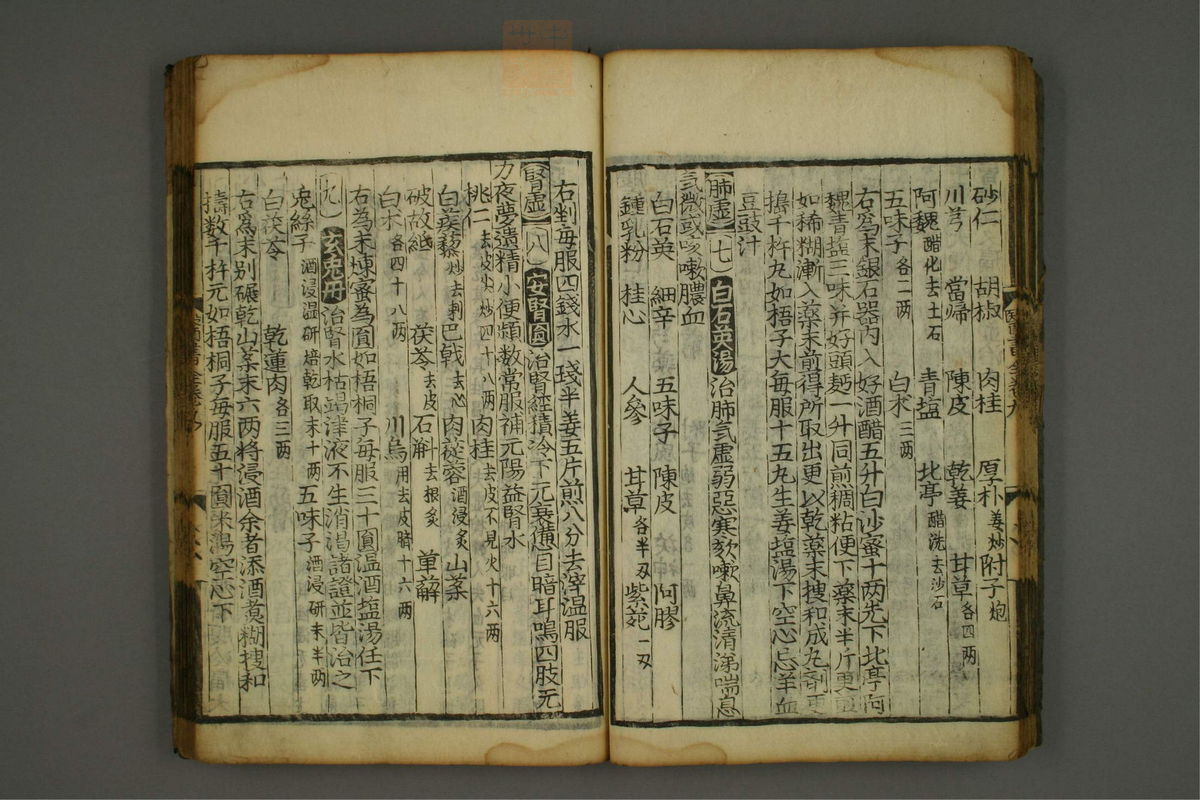 砂仁 胡椒 肉桂 厚朴姜炒 附子炮
川芎 當歸 陳皮 乾姜 甘草各四兩
阿魏醋化去土石 青塩 北亭醋洗去沙石
五味子各二兩 白朮三兩
右爲末銀石器內入好酒醋五升白沙蜜十兩先下北亭阿
魏青塩三味并好頭麺一升同煎稠粘便下藥末半斤更煎
如稀糊漸入藥末煎得所取出更以乾藥末搜和成丸劑更
搗千杵丸如梧子大每服十五丸生姜塩湯下空心忌羊血
豆豉汁
肺虛 七 白石英湯 治肺氣虛弱惡寒欬嗽鼻流清涕喘息
氣微或咳嗽膿血
白石英 細辛 五味子 陳皮 阿膠
鍾乳粉 桂心 人參 甘草各半刄 紫菀一刄
右剉每服四錢水一琖半姜五片煎八分去滓温服
腎虛 八 安腎圓 治腎經積冷下元衰憊目暗耳鳴四肢无
力夜夢遺精小便頻数常服補元陽益腎水
桃仁去皮尖炒四十八兩 肉桂去皮不見火十六兩
白蒺藜炒去刺 巴戟去心 肉蓯蓉酒浸炙 山薬
破故紙 茯苓去皮 石斛去根炙 萆薢
白朮各四十八兩 川烏用去皮臍十六兩
右為末煉蜜為圓如梧桐子每服三十圓温酒塩湯任下
九 玄兎丹 治腎水枯竭津液不生消渇諸證並皆治之
兎絲子酒浸温研焙乾取末十兩 五味子酒浸研末半兩
白茯苓 乾蓮肉各三兩
右爲末别碾乾山藥末六兩将浸酒余者添酒煮糊搜和
擣数千杵元如梧桐子每服五十圓米湯空心下